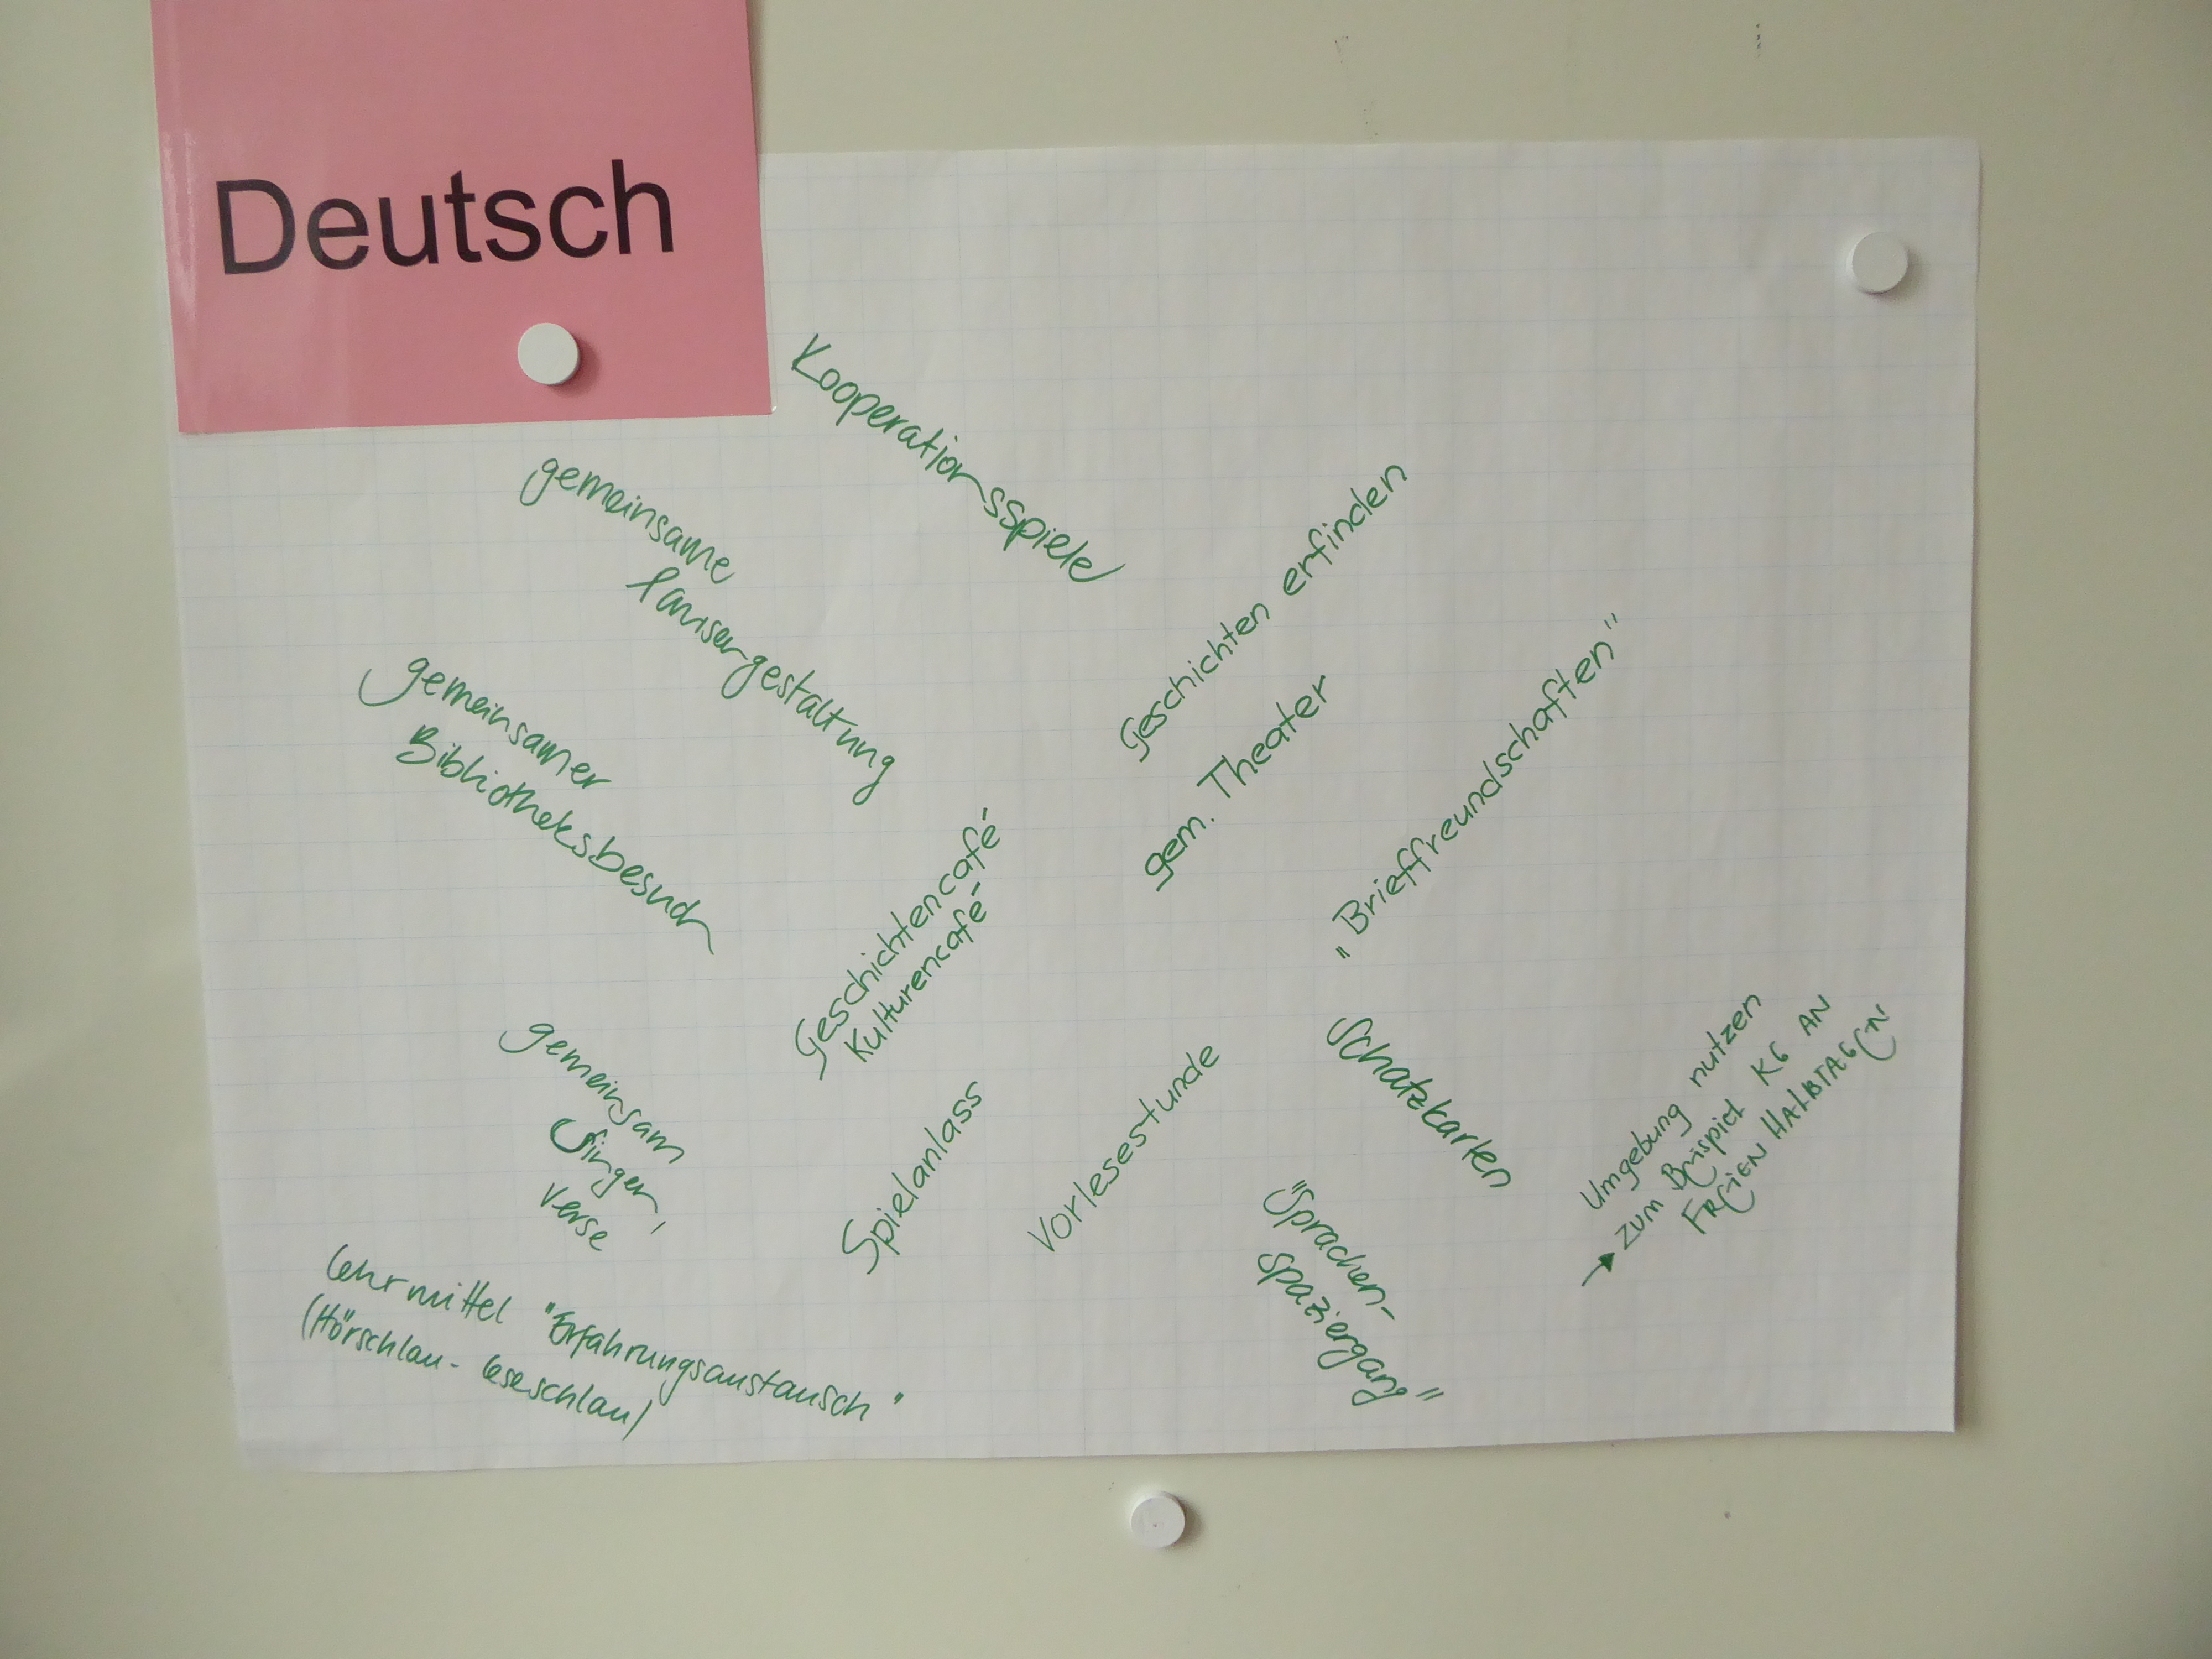 Deutsch
Kooperationsspiele
gemeinsame
Pausengestaltung
gemeinsamer
Bibliotheksbesuch
Geschichten erfinden
gem. Theater
"Brieffreundschaften"
Geschichtencafé
Kulturencafé
gemeinsam
Singen,
Verse
Spielanlass
Vorlesestunde
Schatzkarten
"Sprachen-
spaziergang"
Umgebung nutzen
→ ZUM BEISPIEL KG AN
FREIEN HALBTAGEN
Lehrmittel "Erfahrungsaustausch"
(Hörschlau - Leseschlau)